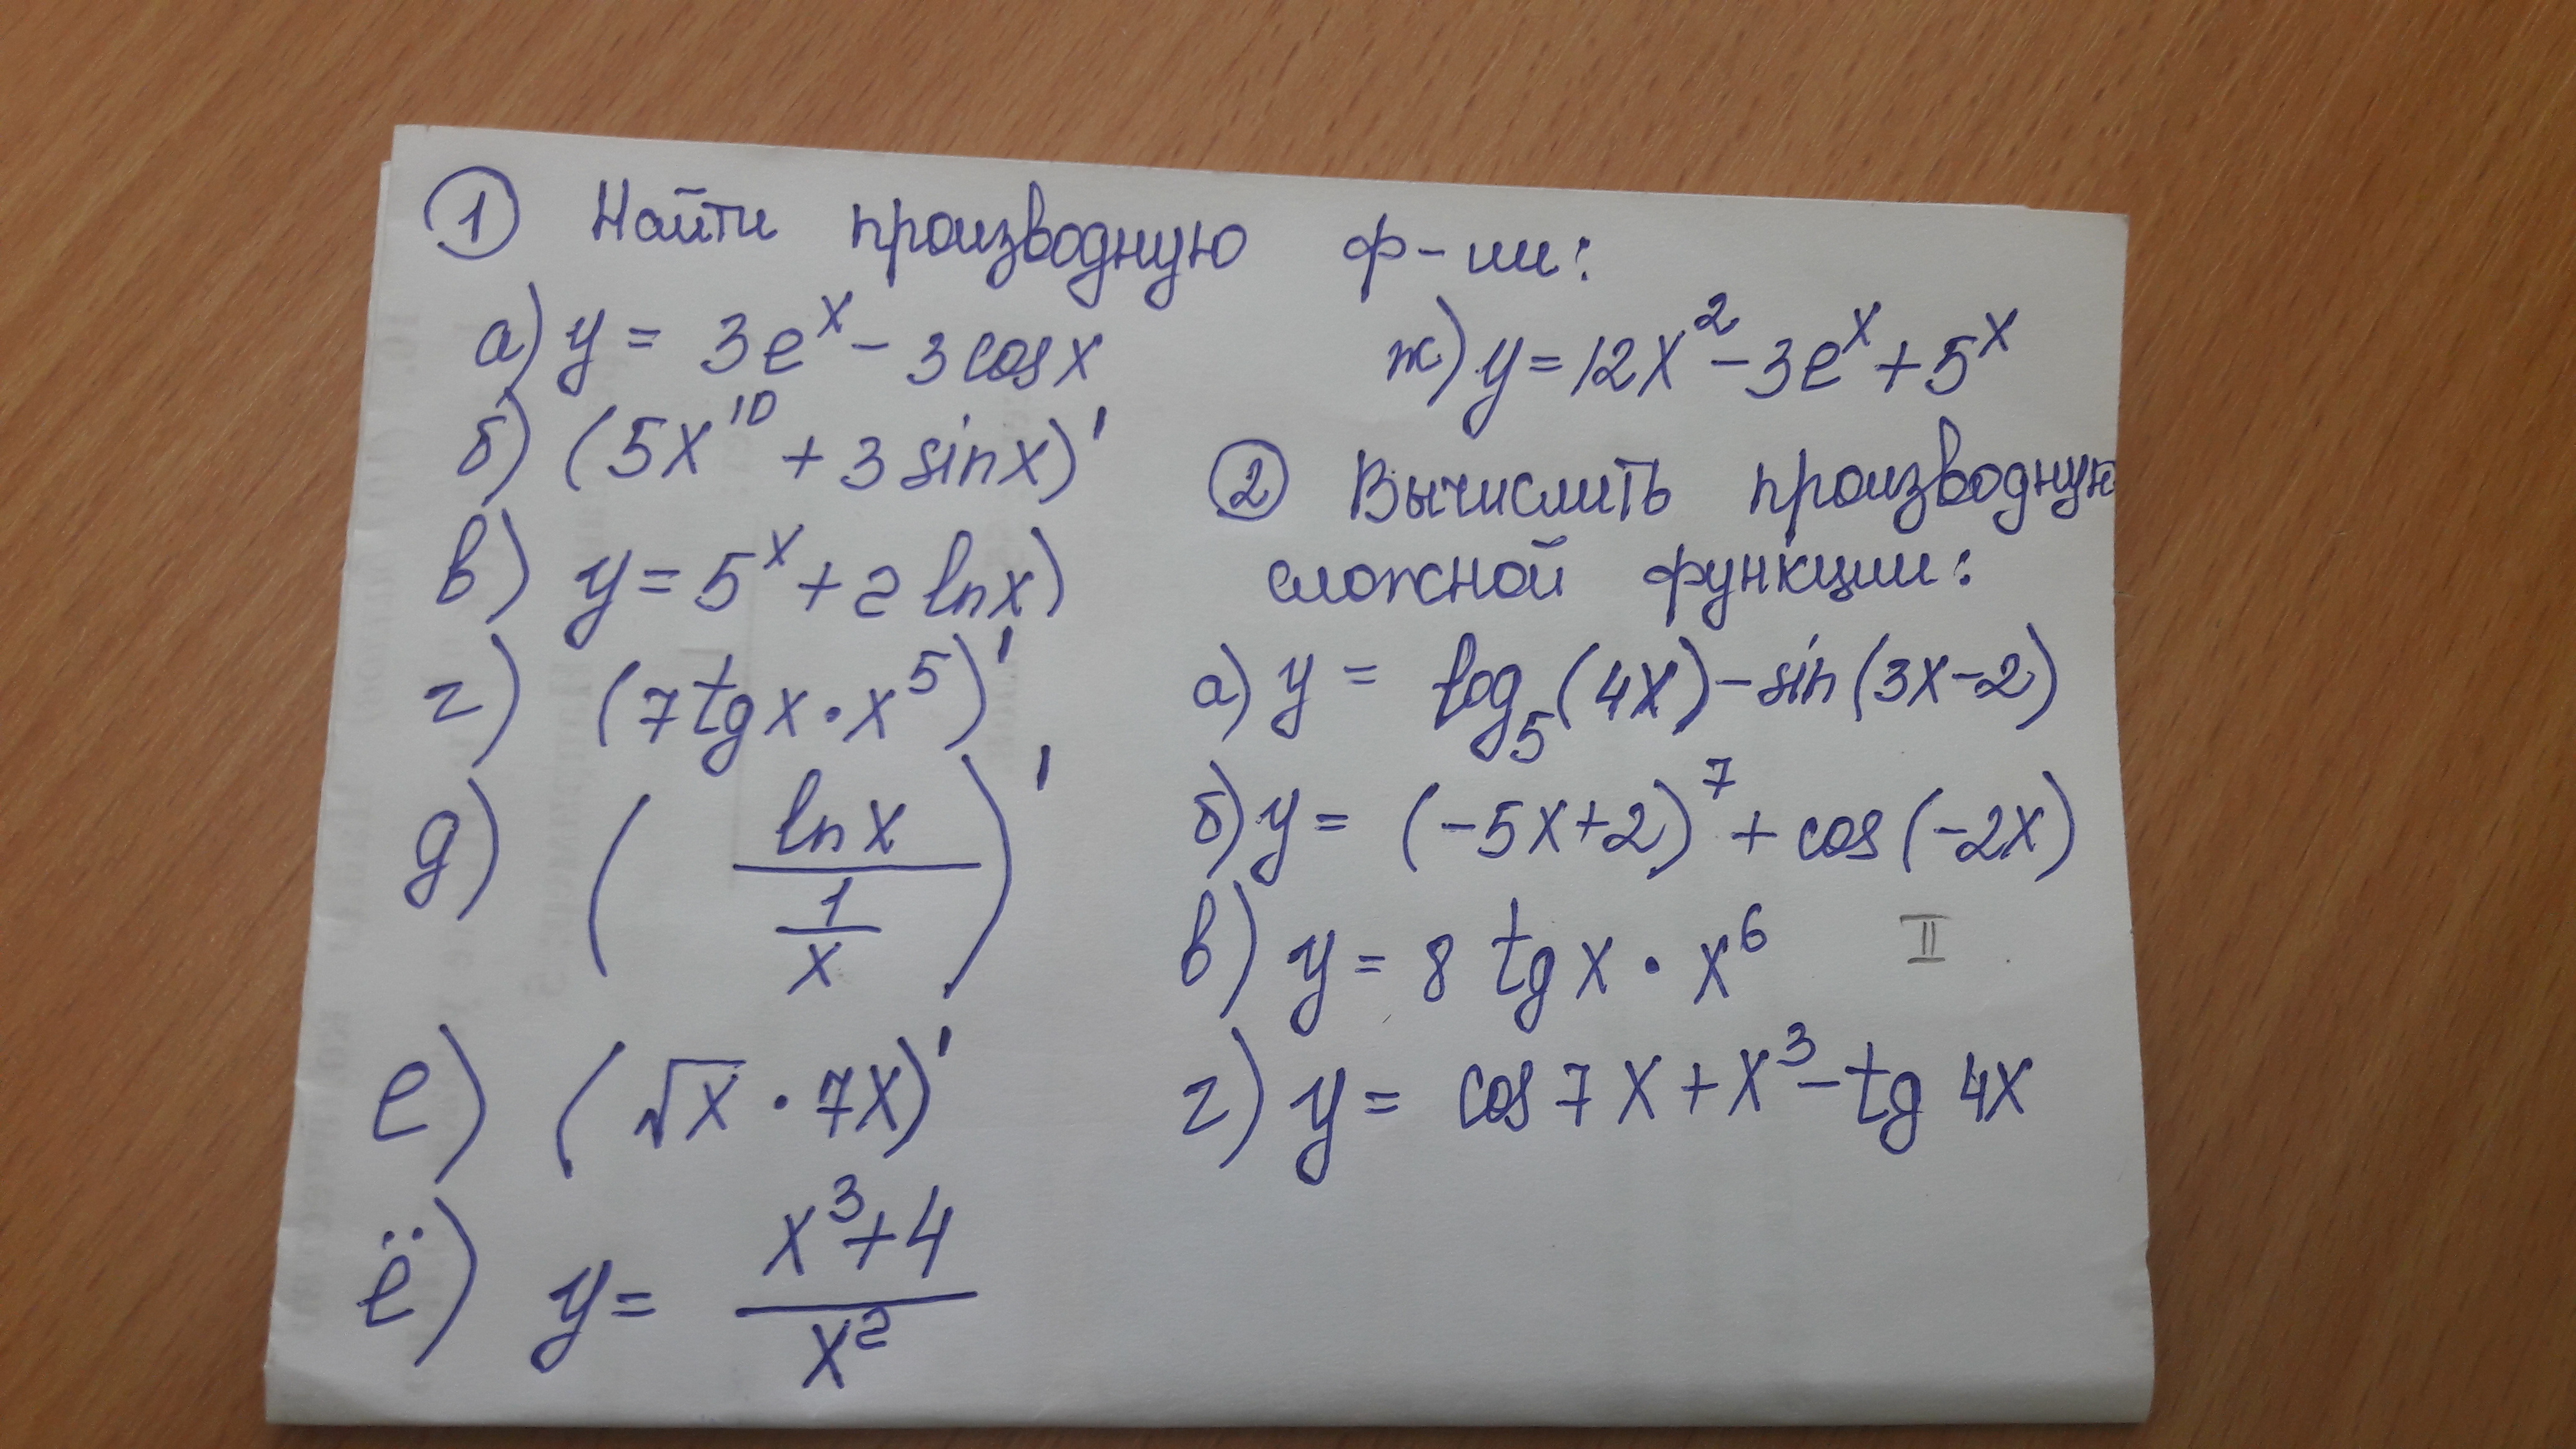 ① Найти производную ф-ии:
а) y = 3e^x - 3cosx
б) (5x^10 + 3sinx)'
в) y = 5^x + 2 lnx)
г) (7tgx · x^5)'
д) (lnx / (1/x))'
е) (√x · 7x)'
ё) y = (x^3+4) / x^2
ж) y = 12x^2 - 3e^x + 5^x
② Вычислить производную
сложной функции:
а) y = log_5(4x) - sin(3x-2)
б) y = (-5x+2)^7 + cos(-2x)
в) y = 8 tgx · x^6
II
г) y = cos7x + x^3 - tg 4x